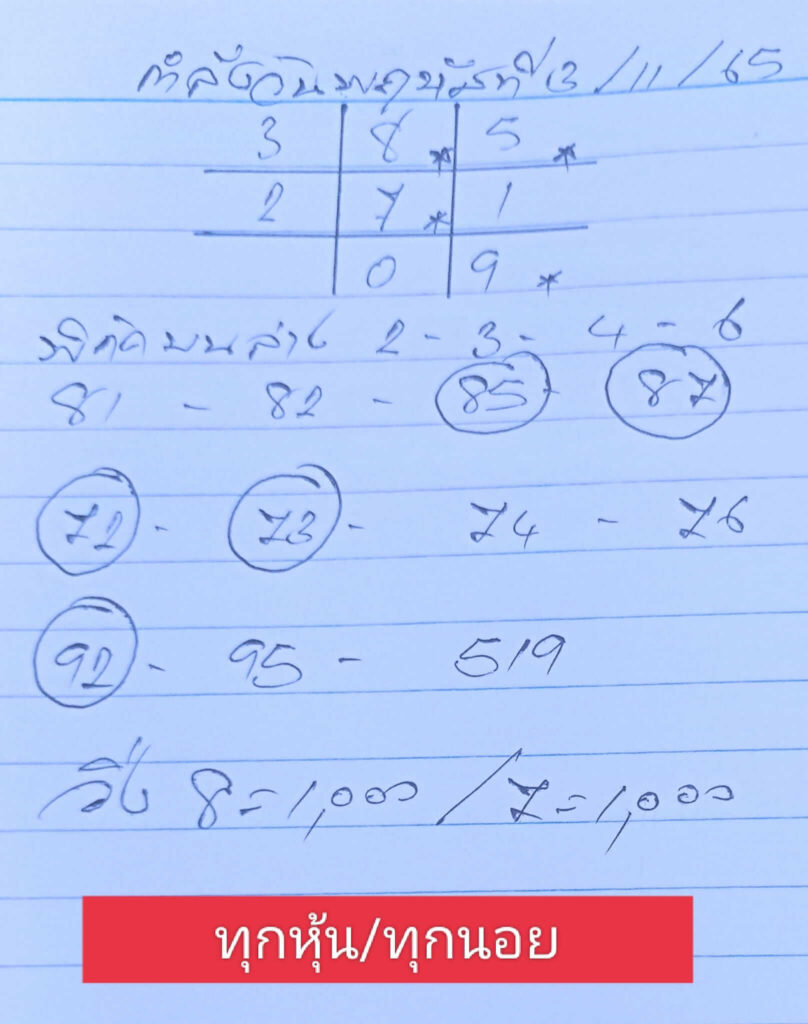 กำลังวันพฤหัสที่ 3/11/65
3 8* 5*
2 7* 1
0 9*
พิกัดบนล่าง 2 - 3 - 4 - 6
81 - 82 - 85 - 87
72 - 73 - 74 - 76
92 - 95 - 519
วิ่ง 8=1,000 / 7=1,000
ทุกหุ้น/ทุกนอย